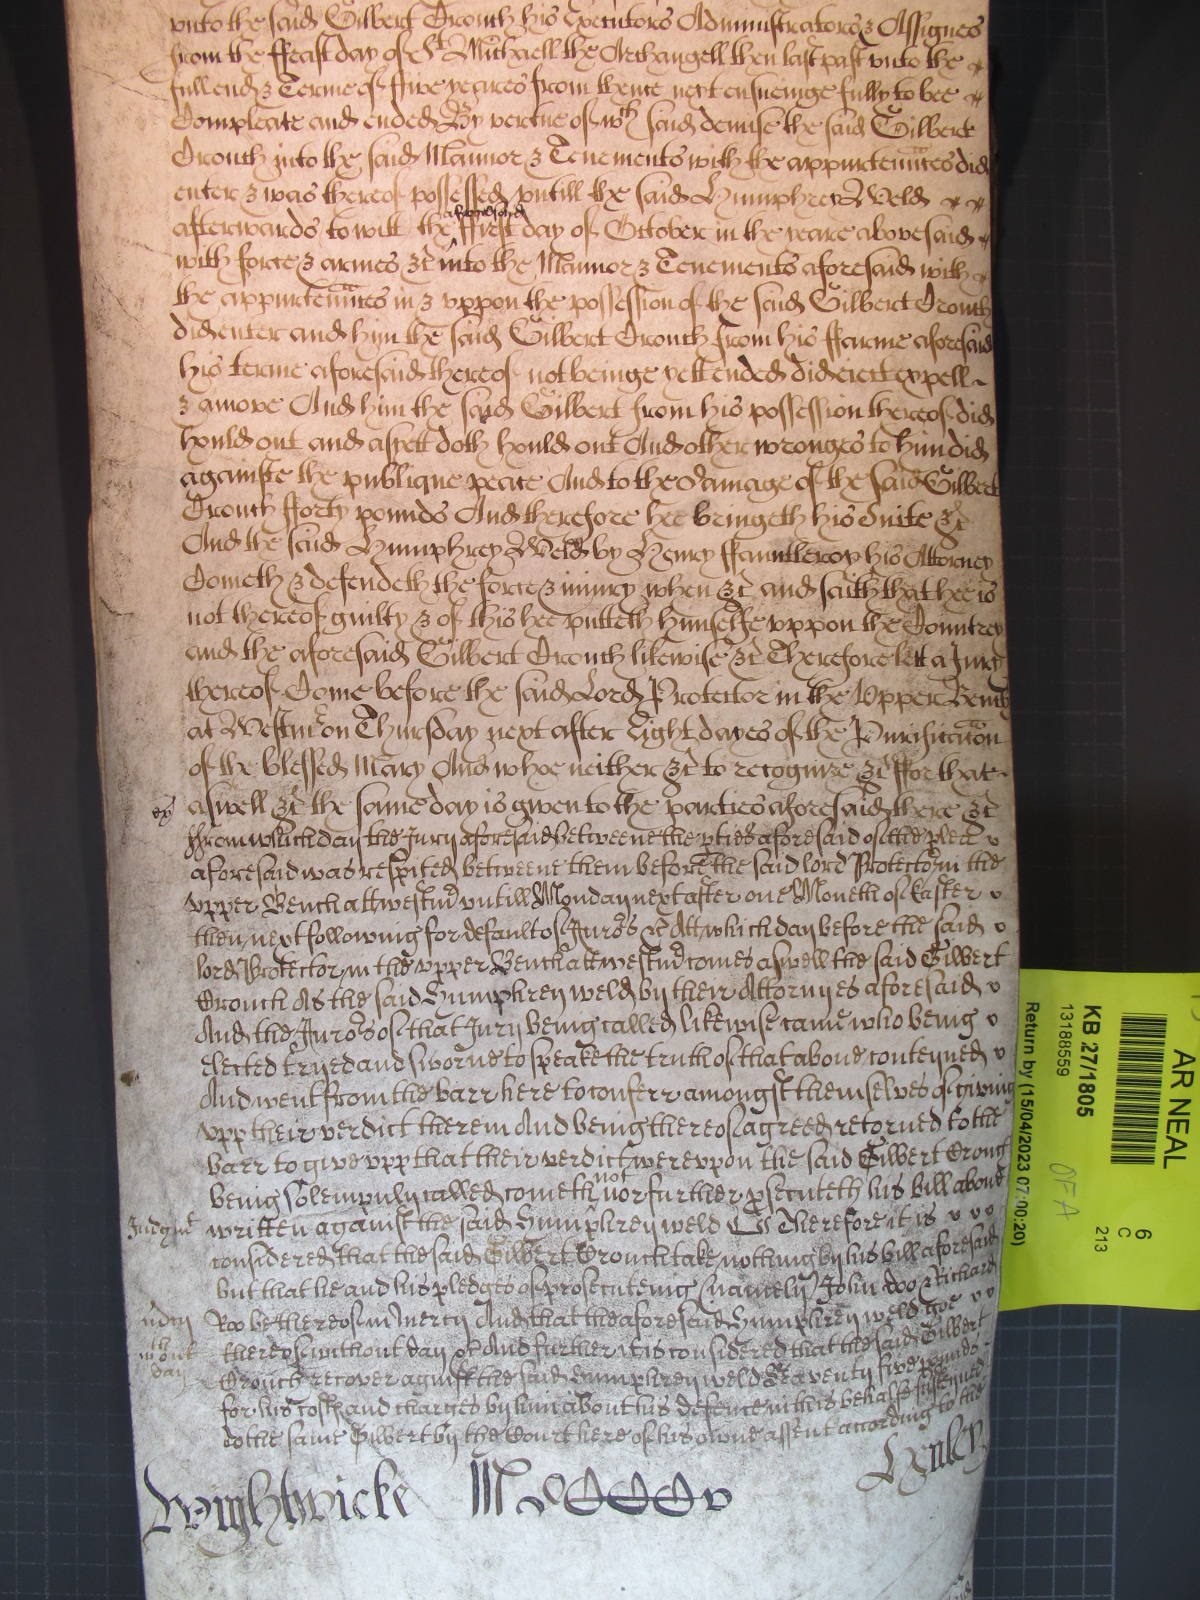 vnto the said Gilbert Crouch his Executors Administrators & Assignes
from the ffeast day of St Michaell the Archangell then last past vnto the
full end & Terme of ffive yeares from thence next ensueinge fully to bee
Compleate and ended By vertue of wch said demise the said Gilbert
Crouch into the said Mannor & Tenements with the appurtenñces did
enter & was thereof possessed vntill the said Humphrey Weld
afterwards to witt the aforesaid ffirst day of October in the yeare abovesaid
with force & armes &c into the Mannor & Tenements aforesaid with
the appurtenñces in & vppon the possession of the said Gilbert Crouch
did enter and him the said Gilbert Crouch from his ffarme aforesaid
his terme aforesaid thereof not beinge yett ended did eiect expell
& amove And him the said Gilbert from his possession thereof did
hould out and as yett doth hould out And other wronges to him did
againste the publique peace And to the Damage of the said Gilbert
Crouch fforty pounds And therefore hee bringeth his Suite &c
And the said Humphrey Weld by Henry ffauntleroy his Attorney
Cometh & defendeth the force & iniury when &c and saith that hee is
not thereof guilty & of this hee putteth himselfe vppon the Countrey
and the aforesaid Gilbert Crouch likewise &c Therefore lett a Jury
thereof Come before the said Lord Protector in the Vpper Bench
at Westmr on Thursday next after Eight dayes of the Purificacõn
of the blessed Mary And whoe neither &c to recognize &c ffor that
aswell &c the same day is given to the parties aforesaid there &c
ffrom which day the Jury aforesaid betweene the pties aforesaid of the plea
aforesaid was respited betweene them before the said lord Protector in the
vpper Bench att westmr vntill Monday next after one Moneth of Easter
then next following for default of Jurors &c Att which day before the said
lord Protector in the vpper Bench att westmr comes aswell the said Gilbert
Crouch As the said Humphrey weld by their Attornyes aforesaid
And the Jurors of that Jury being called likewise came who being
elected tryed and sworne to speake the truth of that above conteyned
And went from the barr here to conferr amongst themselves of giving
vpp their verdict therein And being thereof agreed retorned to the
barr to give vpp that their verdict werevpon the said Gilbert Crouch
being solempnly called cometh not nor further psecuteth his bill above
Judgmt
written against the said Humphrey weld &c Therefore it is
considered that the said Gilbert Crouch take nothing by his bill aforesaid
but that he and his pledges of prosecuteing (namely) John doo & Richard
Roo be thereof in mercy And that the aforesaid Humphrey weld goe
thereof without day &c And further it is considered that the said Gilbert
wthout
day
Crouch recover against the said Humphrey weld Seaventy five pounds
for his costs and charges by him about his defence in this behalfe susteyned
to the same Gilbert by the Court here of his owne assent according to the
Wightwicke
Henley
AR NEAL
6
C
213
KB 27/1805
13188559
Return by (15/04/2023 07:00:20)
OFA